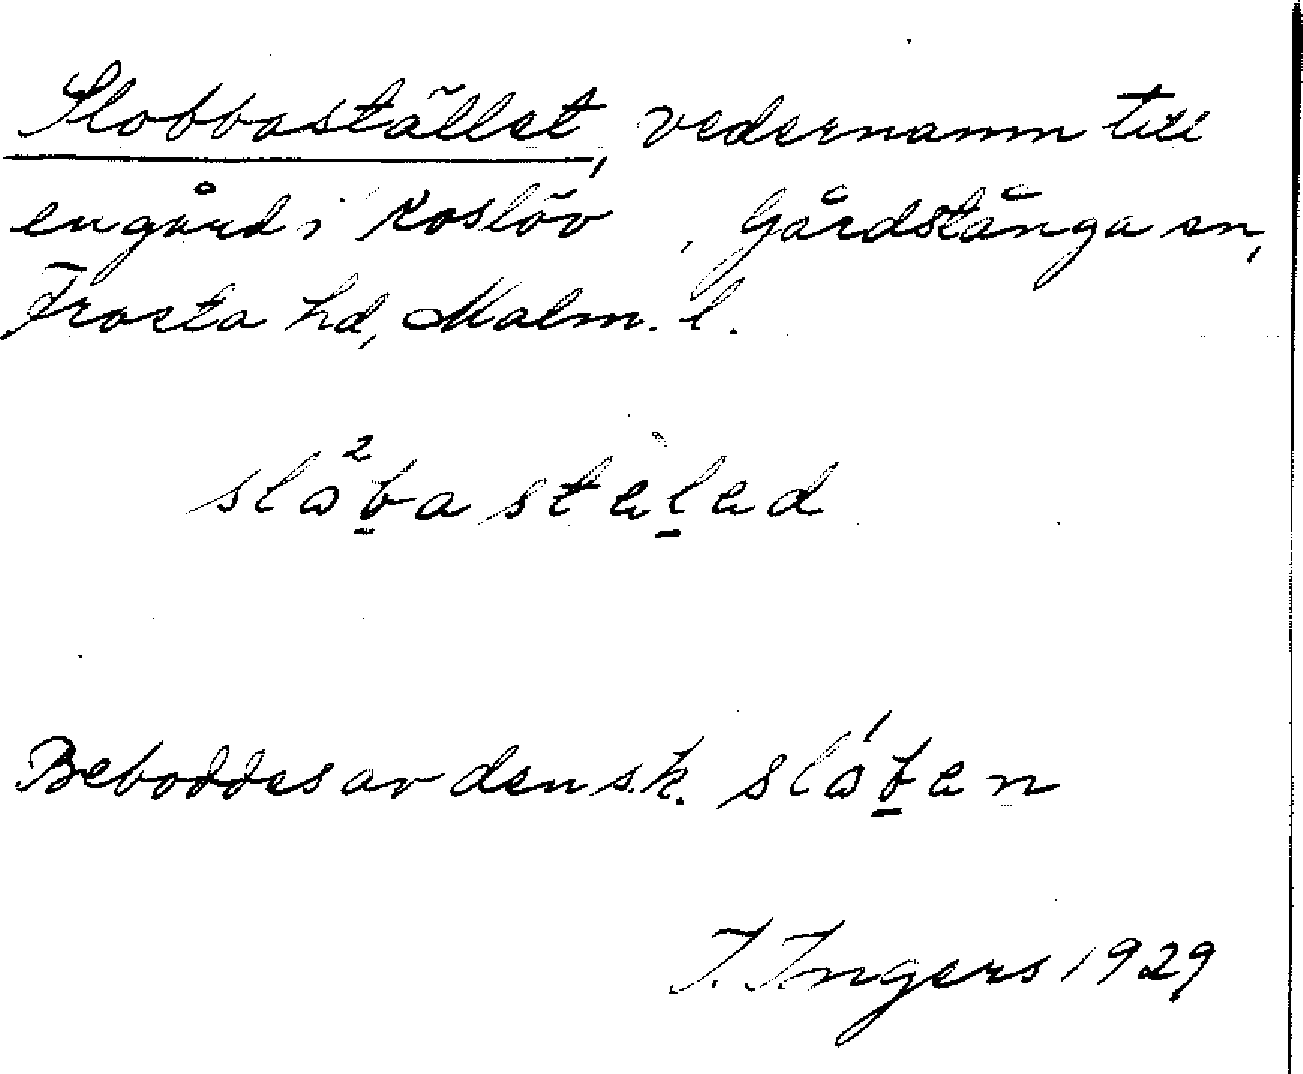 Slobbastället, vedernamn till
en gård i Roslöv, Gårdstånga sn,
Frosta hd, Malm. l.
slɷ²b̲astɛ̀l̲ad
Beboddes av den s.k. slɷ́b̲en
I. Ingers 1929